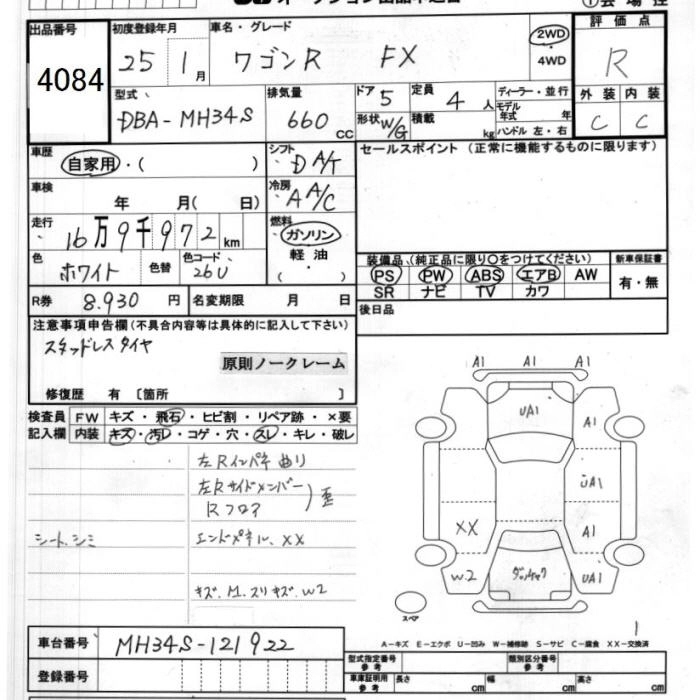 出品番号 初度登録年月 車名・グレード 評価点
4084 25 1月 ワゴンR FX 2WD ・ 4WD R
型式 排気量 ドア 5 定員 4人 ディーラー・並行 外装 内装
DBA-MH34S 660 CC 形状 W/G 積載 kg モデル年式 年 ハンドル 左・右 C C
車歴 自家用・( ) シフト D A/T セールスポイント(正常に機能するものに限ります)
車検 年 月( 日) 冷房 A A/C
走行 16万9千972km 燃料 ガソリン 軽油 ( )
色 ホワイト 色替 色コード 26U
装備品(純正品に限り○をつけてください) 新車保証書
PS PW ABS エアB AW 有・無
SR ナビ TV カワ
R券 8.930円 名変期限 月 日 後日品
注意事項申告欄(不具合内容等は具体的に記入して下さい)
スタッドレスタイヤ
原則ノークレーム
修復歴 有 [箇所 ]
検査員 FW キズ・飛石・ヒビ割・リペア跡・×要
記入欄 内装 キズ・汚レ・コゲ・穴・スレ・キレ・破レ
左Rインパネ曲り
左Rサイドメンバー
Rフロア
歪
シート、シミ エンドパネル、XX
キズ、M.スリキズ.W2
A1 A1 A1
UA1 A1
UA1
XX A1
W2 UA1
スペア
1
A-キズ E-エクボ U-凹み W-補修跡 S-サビ C-腐食 XX-交換済
車台番号 MH34S-121922
登録番号
型式指定番号 参考 類別区分番号 参考
車庫証明用 参考 長さ cm 幅 cm 高さ cm